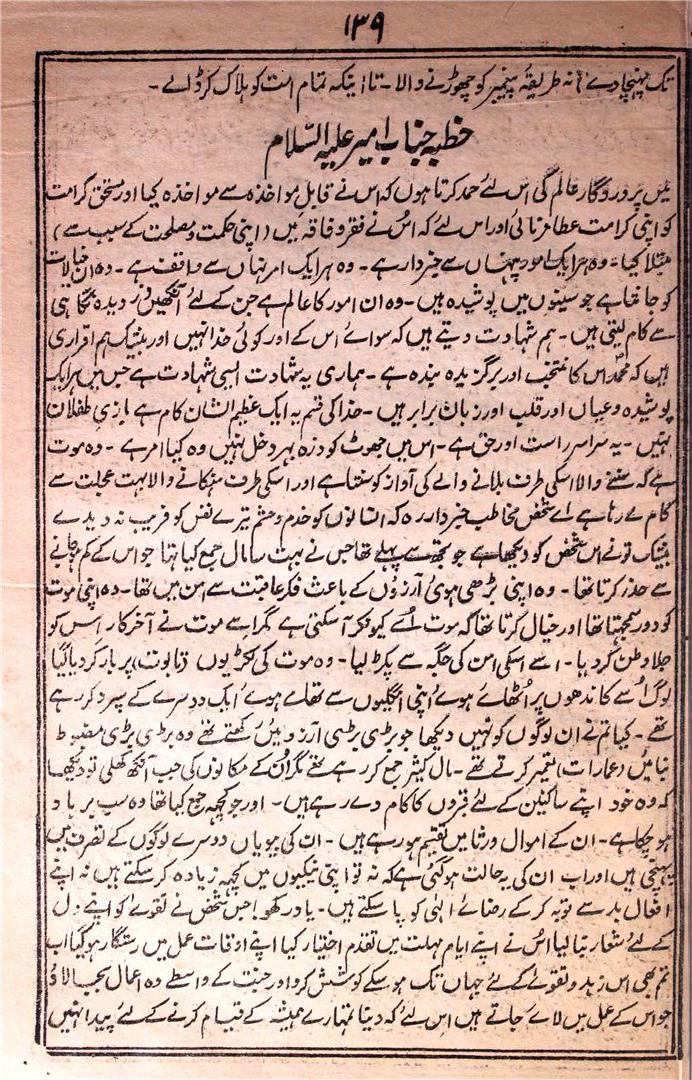 ۱۳۹
تک پہنچادے نہ طریقۂ پیغمبر کو چھوڑنے والا۔ تا اینکہ تمام امت کو ہلاک کرڈالے۔
خطبہ جناب امیر علیہ السّلام
میں پروردگار عالم کی اس لئے حمد کرتا ہوں کہ اس نے قابل مواخذہ سے مواخذہ کیا اور مستحق کرامت
کو اپنی کرامت عطا فرمائی اور اس لئے کہ اس نے فقر و فاقہ میں (اپنی حکمت و مصلحت کے سبب سے)
مبتلا کیا۔ وہ ہر ایک امور پنہاں سے خبردار ہے۔ وہ ہر ایک امر نہاں سے واقف ہے۔ وہ ان خیالات
کو جانتا ہے جو سینوں میں پوشیدہ ہیں۔ وہ ان امور کا عالم ہے جن کے لئے آنکھیں دزدیدہ نگاہی
سے کام لیتی ہیں۔ ہم شہادت دیتے ہیں کہ سوائے اس کے اور کوئی خدا نہیں اور بیشک ہم اقراری
ہیں کہ محمدؐ اس کا منتخب اور برگزیدہ بندہ ہے۔ ہماری یہ شہادت ایسی شہادت ہے جس میں ہر ایک
پوشیدہ و عیاں اور قلب اور زبان برابر ہیں۔ خدا کی قسم یہ ایک عظیم الشان کام ہے بازی طفلان
نہیں۔ یہ سراسر راست اور حق ہے۔ اس میں جھوٹ کو ذرہ بہر دخل نہیں وہ کیا امر ہے۔ وہ موت
ہے کہ سننے والا اسکی طرف بلانے والے کی آواز کو سنتا ہے اور اسکی طرف ہنکانے والا بہت عجلت سے
کام لے رہا ہے اے شخص مخاطب خبردار رہ کہ انسانوں کو خدم و حشم تیرے نفس کو فریب نہ دیدے
بیشک تو نے اس شخص کو دیکھا ہے جو تجھ سے پہلے تھا جس نے بہت سا مال جمع کیا تھا جو اس کے کم ہو جانے
سے حذر کرتا تھا۔ وہ اپنی بڑھی ہوئی آرزؤں کے باعث فکر عاقبت سے امن میں تھا۔ وہ اپنی موت
کو دور سمجھتا تھا اور خیال کرتا تھا کہ موت اُسے کیونکر آسکتی ہے مگر اسے موت نے آخرکار اس کو
جلا وطن کردیا۔ اسے اسکی امن کی جگہ سے پکڑ لیا۔ وہ موت کی لکڑیوں (تابوت) پر بار کردیا گیا
لوگ اُسے کاندھوں پر اُٹھائے ہوئے اپنی انگلیوں سے تھامے ہوئے ایک دوسرے کے سپرد کر رہے
تھے۔ کیا تم نے ان لوگوں کو نہیں دیکھا جو بڑی بڑی آرزوئیں رکھتے تھے وہ بڑی بڑی مضبوط
بنائیں (عمارات) تعمیر کرتے تھے۔ مال کثیر جمع کر رہے تھے مگر اُن کے مکانوں کی جب آنکھ کھلی تو دیکھا
کہ وہ خود اپنے ساکنین کے لئے قبروں کا کام دے رہے ہیں۔ اور جو کچھ جمع کیا تھا وہ سب برباد
ہو چکا ہے۔ ان کے اموال ورثا میں تقسیم ہو رہے ہیں۔ ان کی بیویاں دوسرے لوگوں کے تصرف میں
پہنچی ہیں اور اب ان کی یہ حالت ہوگئی ہے کہ نہ تو اپنی نیکیوں میں کچھ زیادہ کرسکتے ہیں نہ اپنے
افعال بد سے توبہ کر کے رضائے الٰہی کو پا سکتے ہیں۔ یاد رکھو! جس شخص نے تقوے کو اپنے دل
کے لئے شعار بنالیا اُس نے اپنے ایام مہلت میں تقدم اختیار کیا اپنے اوقات عمل میں رستگار ہوگیا اب
تم بھی اس زہد و تقوے کے لئے جہاں تک ہو سکے کوشش کرو اور جنت کے واسطے وہ اعمال بجا لاؤ
جو اس کے عمل میں لائے جاتے ہیں اس لئے کہ دنیا تمہارے ہمیشہ کے قیام کرنے کے لئے پیدا نہیں